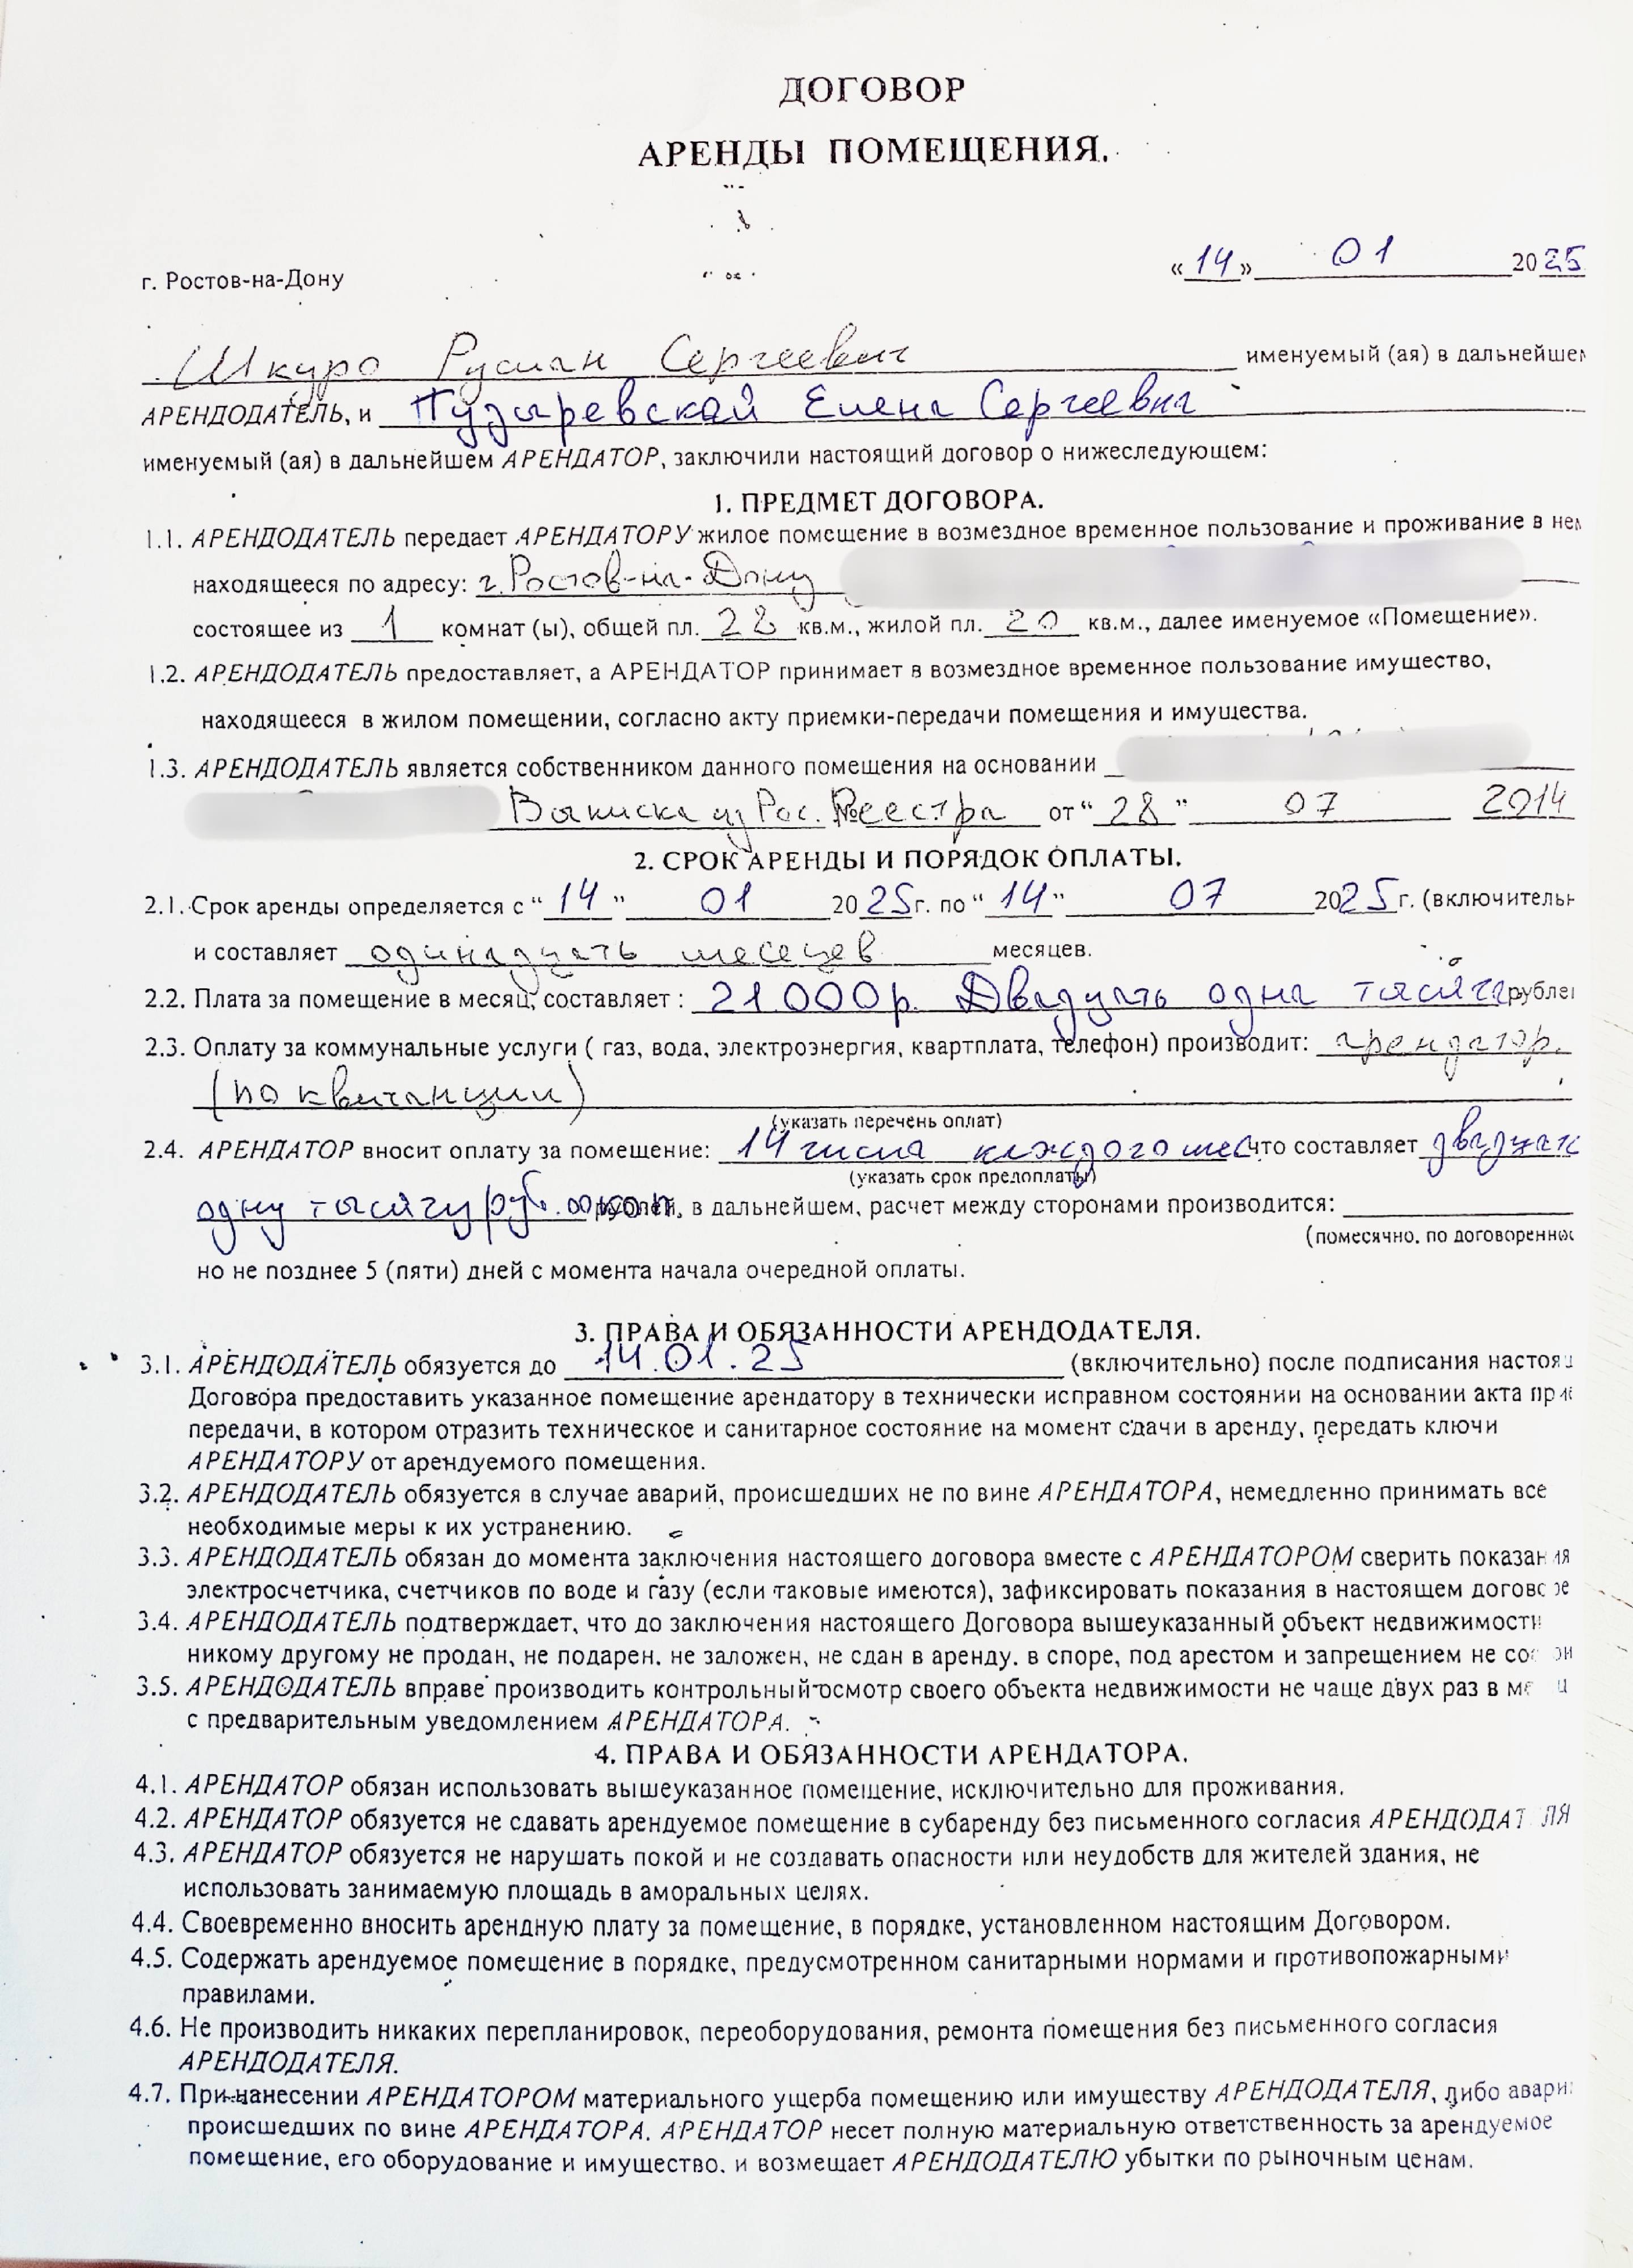 ДОГОВОР
АРЕНДЫ ПОМЕЩЕНИЯ.
г. Ростов-на-Дону «14» 01 2025
Шкуро Руслан Сергеевич именуемый (ая) в дальнейшем
АРЕНДОДАТЕЛЬ, и Пузыревской Елена Сергеевна
именуемый (ая) в дальнейшем АРЕНДАТОР, заключили настоящий договор о нижеследующем:
1. ПРЕДМЕТ ДОГОВОРА.
1.1. АРЕНДОДАТЕЛЬ передает АРЕНДАТОРУ жилое помещение в возмездное временное пользование и проживание в нем
находящееся по адресу: г. Ростов-на-Дону
состоящее из 1 комнат (ы), общей пл. 28 кв.м., жилой пл. 20 кв.м., далее именуемое «Помещение».
1.2. АРЕНДОДАТЕЛЬ предоставляет, а АРЕНДАТОР принимает в возмездное временное пользование имущество,
находящееся в жилом помещении, согласно акту приемки-передачи помещения и имущества.
1.3. АРЕНДОДАТЕЛЬ является собственником данного помещения на основании
Выписка из Рос. Реестра от “ 28 ” 07 2014
2. СРОК АРЕНДЫ И ПОРЯДОК ОПЛАТЫ.
2.1. Срок аренды определяется с “ 14 ” 01 2025г. по “ 14 ” 07 2025г. (включительн
и составляет одинадцать месецев месяцев.
2.2. Плата за помещение в месяц, составляет : 21.000р. Двадцать одна тысяча рублей
2.3. Оплату за коммунальные услуги ( газ, вода, электроэнергия, квартплата, телефон) производит: арендатор.
(по квитанции)
(указать перечень оплат)
2.4. АРЕНДАТОР вносит оплату за помещение: 14 числа каждого мес что составляет двадцать
(указать срок предоплаты)
одну тысячу руб. 00 коп. рублей, в дальнейшем, расчет между сторонами производится:
(помесячно, по договоренно
но не позднее 5 (пяти) дней с момента начала очередной оплаты.
3. ПРАВА И ОБЯЗАННОСТИ АРЕНДОДАТЕЛЯ.
3.1. АРЕНДОДАТЕЛЬ обязуется до 14.01.25 (включительно) после подписания настоя
Договора предоставить указанное помещение арендатору в технически исправном состоянии на основании акта при
передачи, в котором отразить техническое и санитарное состояние на момент сдачи в аренду, передать ключи
АРЕНДАТОРУ от арендуемого помещения.
3.2. АРЕНДОДАТЕЛЬ обязуется в случае аварий, происшедших не по вине АРЕНДАТОРА, немедленно принимать все
необходимые меры к их устранению.
3.3. АРЕНДОДАТЕЛЬ обязан до момента заключения настоящего договора вместе с АРЕНДАТОРОМ сверить показания
электросчетчика, счетчиков по воде и газу (если таковые имеются), зафиксировать показания в настоящем договоре
3.4. АРЕНДОДАТЕЛЬ подтверждает, что до заключения настоящего Договора вышеуказанный объект недвижимости
никому другому не продан, не подарен, не заложен, не сдан в аренду, в споре, под арестом и запрещением не со
3.5. АРЕНДОДАТЕЛЬ вправе производить контрольный осмотр своего объекта недвижимости не чаще двух раз в ме
с предварительным уведомлением АРЕНДАТОРА.
4. ПРАВА И ОБЯЗАННОСТИ АРЕНДАТОРА.
4.1. АРЕНДАТОР обязан использовать вышеуказанное помещение, исключительно для проживания.
4.2. АРЕНДАТОР обязуется не сдавать арендуемое помещение в субаренду без письменного согласия АРЕНДОДАТЕЛЯ
4.3. АРЕНДАТОР обязуется не нарушать покой и не создавать опасности или неудобств для жителей здания, не
использовать занимаемую площадь в аморальных целях.
4.4. Своевременно вносить арендную плату за помещение, в порядке, установленном настоящим Договором.
4.5. Содержать арендуемое помещение в порядке, предусмотренном санитарными нормами и противопожарными
правилами.
4.6. Не производить никаких перепланировок, переоборудования, ремонта помещения без письменного согласия
АРЕНДОДАТЕЛЯ.
4.7. При нанесении АРЕНДАТОРОМ материального ущерба помещению или имуществу АРЕНДОДАТЕЛЯ, либо авари
происшедших по вине АРЕНДАТОРА. АРЕНДАТОР несет полную материальную ответственность за арендуемое
помещение, его оборудование и имущество, и возмещает АРЕНДОДАТЕЛЮ убытки по рыночным ценам.